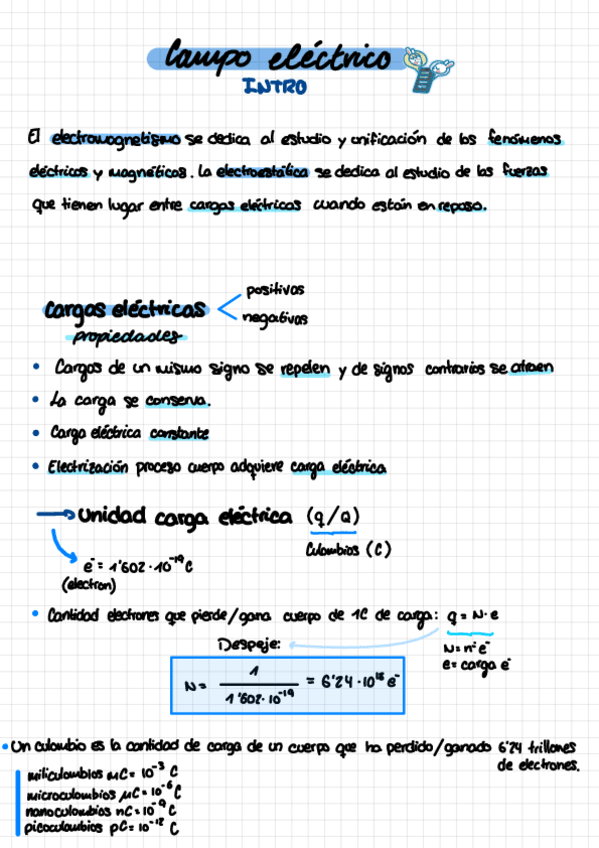 Campo eléctrico
INTRO
El electromagnetismo se dedica al estudio y unificación de los fenómenos
eléctricos y magnéticos. La electroestática se dedica al estudio de las fuerzas
que tienen lugar entre cargas eléctricas cuando están en reposo.
positivas
Cargas eléctricas
negativas
propiedades
• Cargas de un mismo signo se repelen y de signos contrarios se atraen
• La carga se conserva.
• Carga eléctrica constante
• Electrización proceso cuerpo adquiere carga eléctrica
→ Unidad carga eléctrica (q/Q)
Culombios (C)
e⁻ = 1'602·10⁻¹⁹ C
(electron)
• Cantidad electrones que pierde/gana cuerpo de 1C de carga: q = N·e
Despeje:
N = nº e⁻
e = carga e⁻
N = 1 / 1'602·10⁻¹⁹ = 6'24·10¹⁸ e⁻
• Un culombio es la cantidad de carga de un cuerpo que ha perdido/ganado 6'24 trillones
de electrones.
miliculombios mC = 10⁻³ C
microculombios μC = 10⁻⁶ C
nanoculombios nC = 10⁻⁹ C
picoculombios pC = 10⁻¹² C